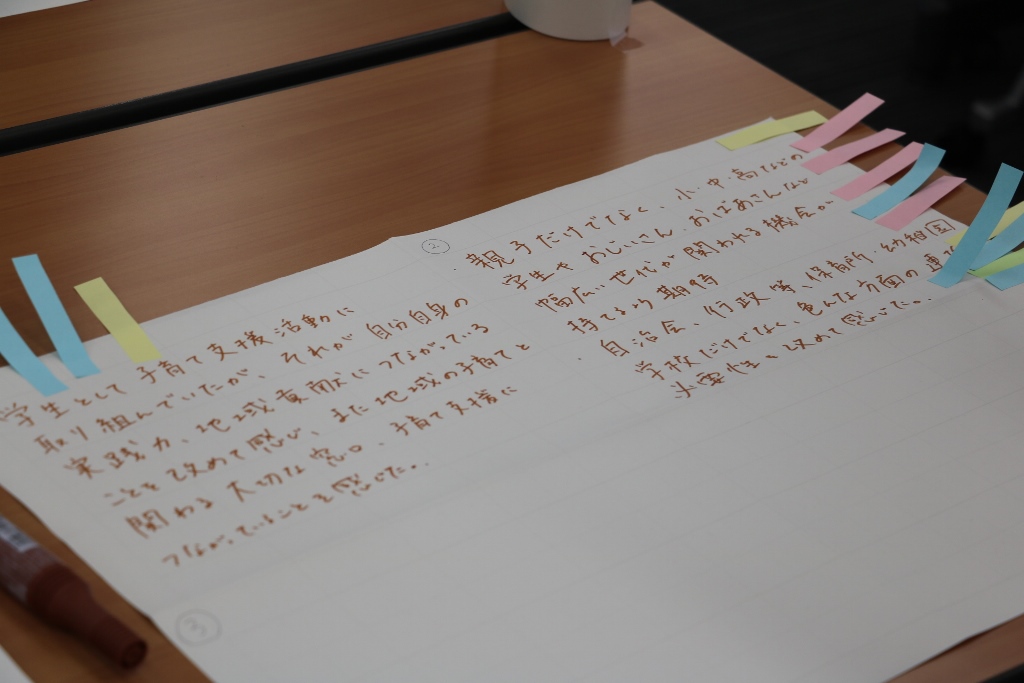 学生として子育て支援活動に
取り組んでいたが、それが自分自身の
実践力、地域貢献につながっている
ことを改めて感じ、また地域の子育てと
関わる大切な窓口、子育て支援に
つながっていることを感じた。
②
・親子だけでなく、小・中・高などの
学生やおじいさん、おばあさんなど
幅広い世代が関われる機会が
持てるよう期待
・自治会、行政等、保育所・幼稚園
学校だけでなく、色んな方面の連
必要性を改めて感じた。
③